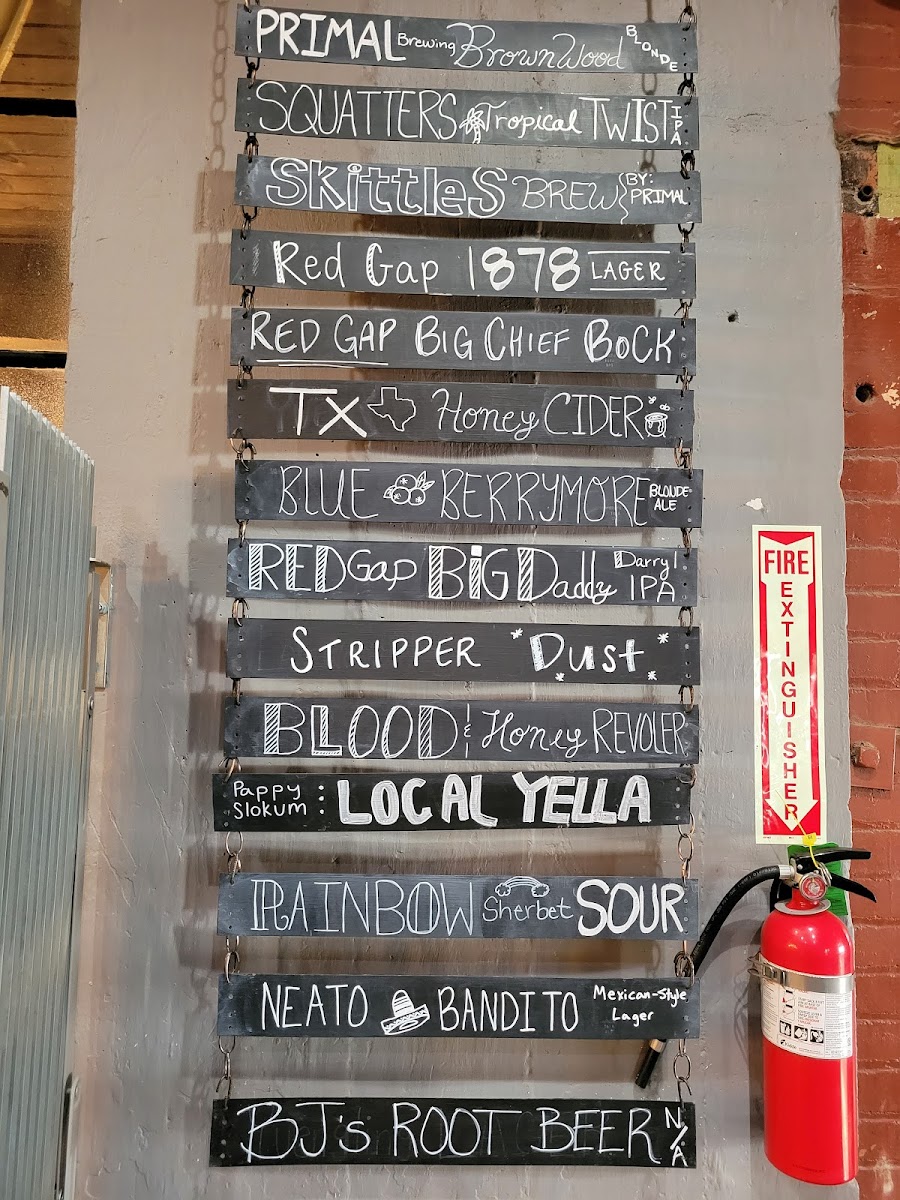 PRIMAL Brewing BrownWood BLONDE
SQUATTERS Tropical TWIST IPA
SKittleS BREW BY: PRIMAL
Red Gap 1878 LAGER
RED GAP BIG CHIEF BOCK
TX Honey CIDER
BLUE BERRYMORE BLONDE ALE
RED Gap BiG Daddy Darryl IPA
STRIPPER Dust
BLOOD & Honey REVOLER
Pappy Slokum : LOCAL YELLA
RAINBOW Sherbet SOUR
NEATO BANDITO Mexican-Style Lager
BJ's ROOT BEER N/A
FIRE
EXTINGUISHER